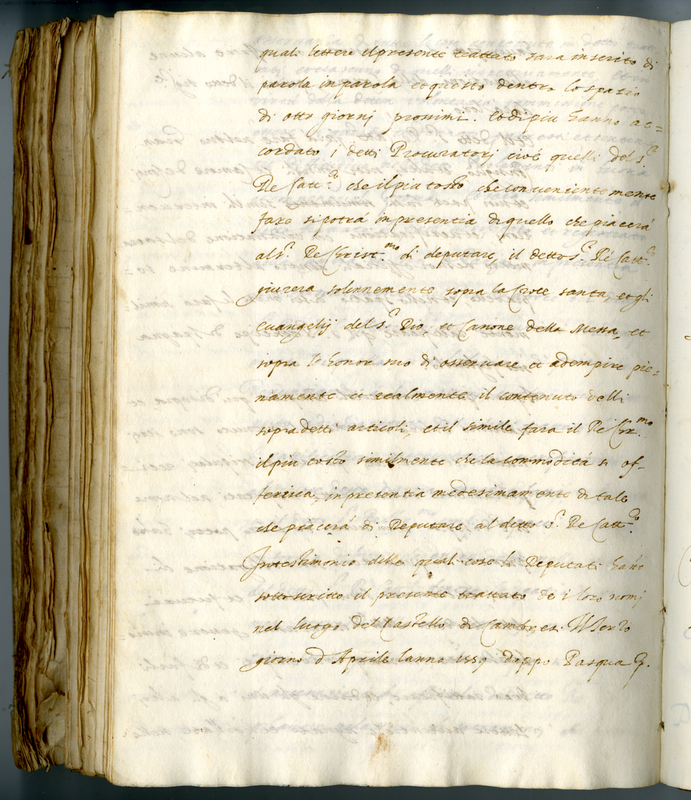 quali lettere il presente trattato sara inserito di
parola in parola et questo dentro lo spatio
di otto giorni prossimi. Et di piu hanno ac=
cordato i detti Procuratorj cioè quelli del s.r
Re Catt.co che il piu tosto che convenientemente
fare si potrà in presentia di quello che piacerà
al s.r Re Christ.mo di deputare, il detto s.r Re Catt.co
giurera solennemente sopra la Croce santa, et gli
Euangelij del s.r Dio, et Canone della Messa, et
sopra l'honor suo di osseruare et adempire pie=
namente et realmente il contenuto delli
sopradetti articoli, et il simile fara il Re Chr.mo
il piu tosto similmente che la commodità si of=
ferirà, in presentia medesimamente di tale
che piacerà di Deputare al ditto s.r Re Catt.co
In testimonio delle qual cose li Deputati hanno
sottoscritto il presente trattato de i loro nomi
nel luogo del Castello di Cambresi. Il terzo
giorno d'Aprile l'anno 1559 doppo Pasqua